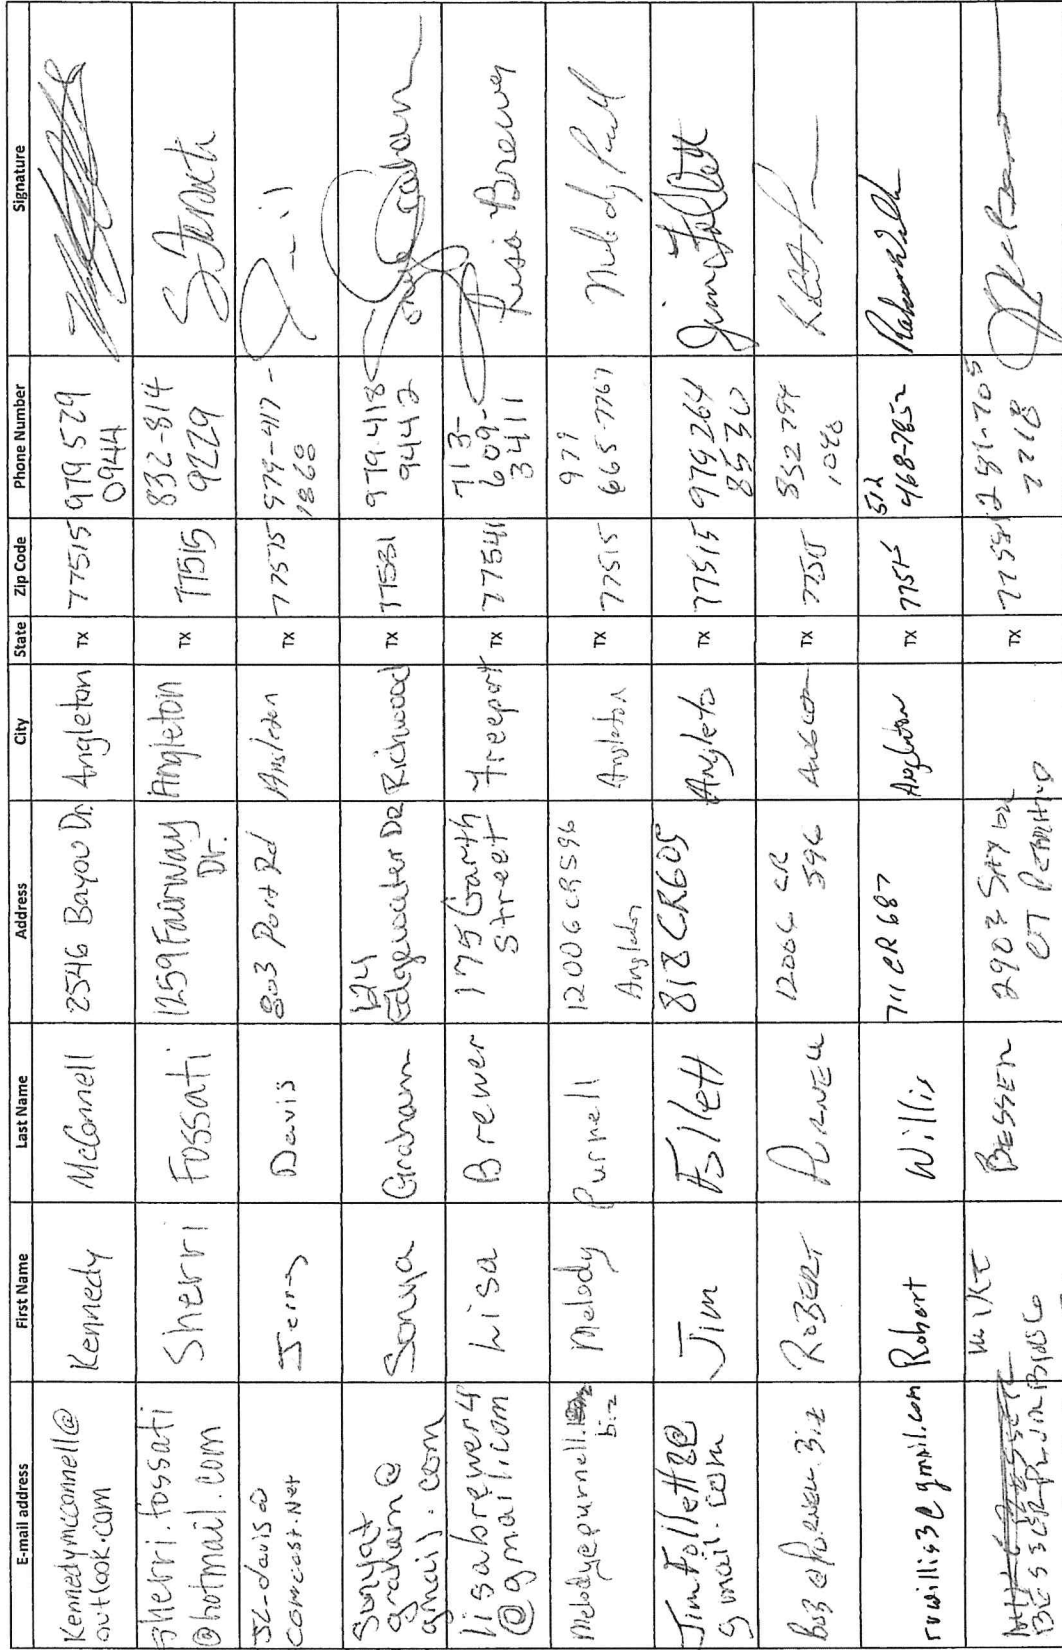 E-mail address First Name Last Name Address City State Zip Code Phone Number Signature
Kennedymcconnell@
outlook.com
Kennedy
McConnell
2546 Bayou Dr.
Angleton
TX
77515
979 529
0944
Sherri.fossati
@hotmail.com
Sherri
Fossati
1259 Fairway
Dr.
Angleton
TX
77515
832-814
9229
JL-davis@
comcast.Net
Jerry
Davis
803 Port Rd
Angleton
TX
77575
979-417-
1868
Sonyat
graham@
gmail.com
Sonya
Graham
124
Edgewater DR
Richwood
TX
77531
979-418-
9442
Sonya Graham
lisabrewer4
@gmail.com
Lisa
Brewer
175 Garth
Street
Freeport
TX
77541
713-
609-
3411
Lisa Brewer
Melody@purnell.
biz
Melody
Purnell
12006 CR 596
Angleton
Angleton
TX
77515
979
665-7767
Melody Purnell
JimFollett2@
gmail.com
Jim
Follett
818 CR605
Angleto
TX
77515
979 264
8530
Jim Follett
Bob@Purnell.Biz
ROBERT
PURNELL
12006 CR
596
Angleton
TX
77515
832 794
1090
rvwillis3@gmail.com
Robert
Willis
711 CR 687
Angleton
TX
77515
512
468-7852
MIKE
BESSER
2903
CT
TX
281-705